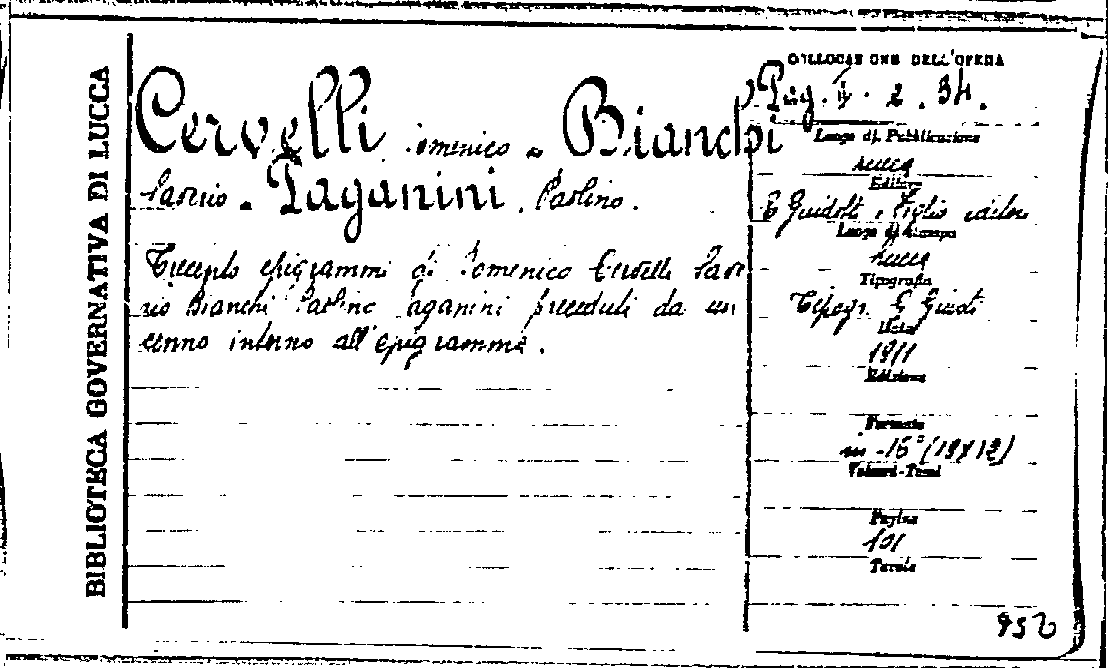 BIBLIOTECA GOVERNATIVA DI LUCCA
Cervelli Domenico - Bianchi
Saverio - Paganini Paolino.
Trecento epigrammi di Domenico Cervelli Save
rio Bianchi Paolino Paganini preceduti da un
cenno intorno all'epigramma.
COLLOCAZIONE DELL'OPERA
Pag. II. 2. 34.
Luogo di Pubblicazione
Lucca
Editore
E Guidotti e Figlio editori
Luogo di Stampa
Lucca
Tipografia
Tipogr. E Guidoti
Data
Edizione
Formato
in-16° (18x12)
Volumi-Tomi
Pagine
101
Tavole